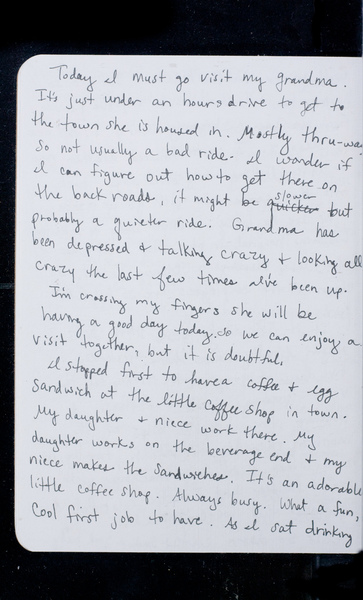 Today I must go visit my grandma.
It's just under an hours drive to get to
the town she is housed in. Mostly thru-wa
so not usually a bad ride. I wonder if
I can figure out how to get there on
the back roads, it might be quicker slower but
probably a quieter ride. Grandma has
been depressed & talking crazy & looking all
crazy the last few times I've been up.
I'm crossing my fingers she will be
having a good day today. so we can enjoy a
visit together, but it is doubtful.
I stopped first to have a coffee & egg
sandwich at the little coffee shop in town.
My daughter & niece work there. My
daughter works on the beverage end & my
niece makes the sandwiches. It's an adorable
little coffee shop. Always busy. What a fun,
cool first job to have. As I sat drinking